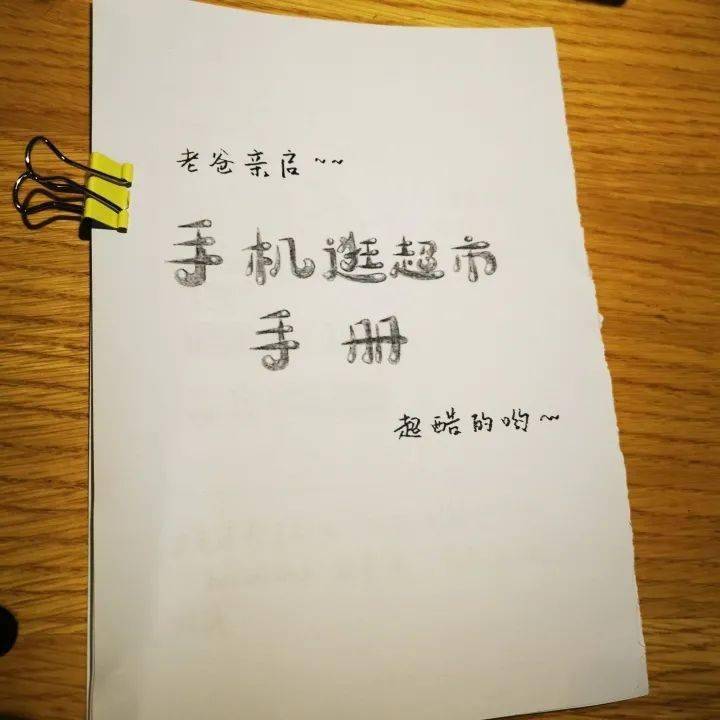 老爸亲启~~
手机逛超市
手册
超酷的哟~